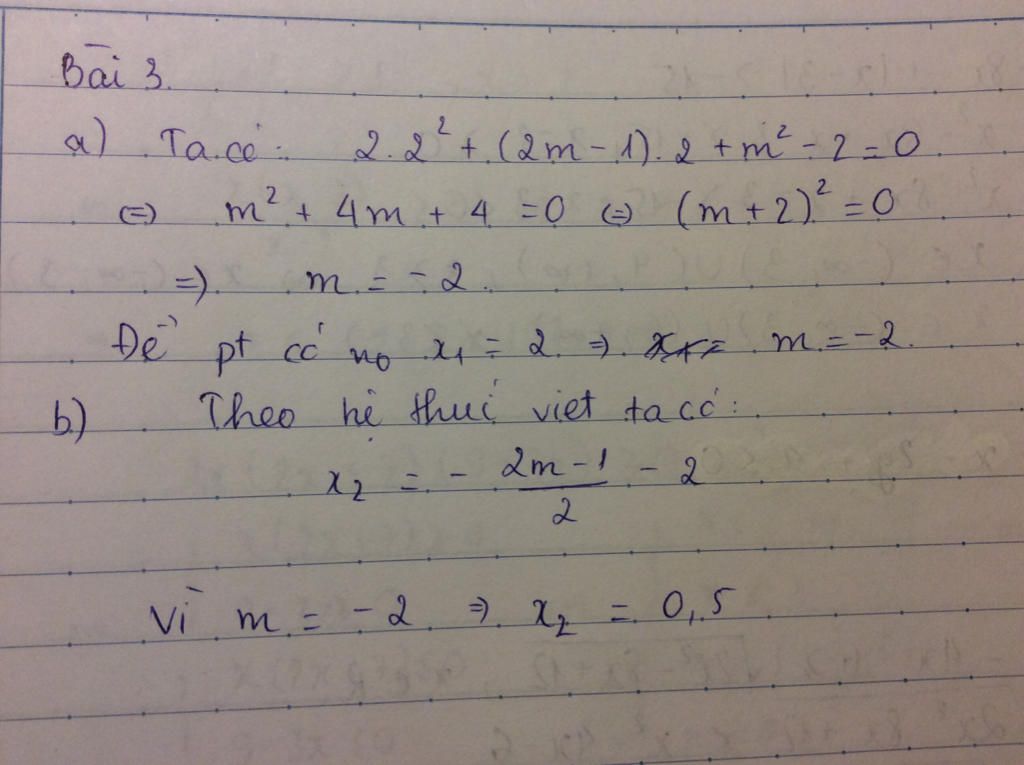 Bài 3.
a) Ta có: 2.2² + (2m - 1).2 + m² - 2 = 0
(=) m² + 4m + 4 = 0 (=) (m + 2)² = 0
=) m = -2.
Để pt có no x₁ = 2 ⇒ m = -2.
b) Theo hệ thưć viet ta có:
x₂ = - \frac{2m - 1}{2} - 2
Vì m = -2 ⇒ x₂ = 0,5